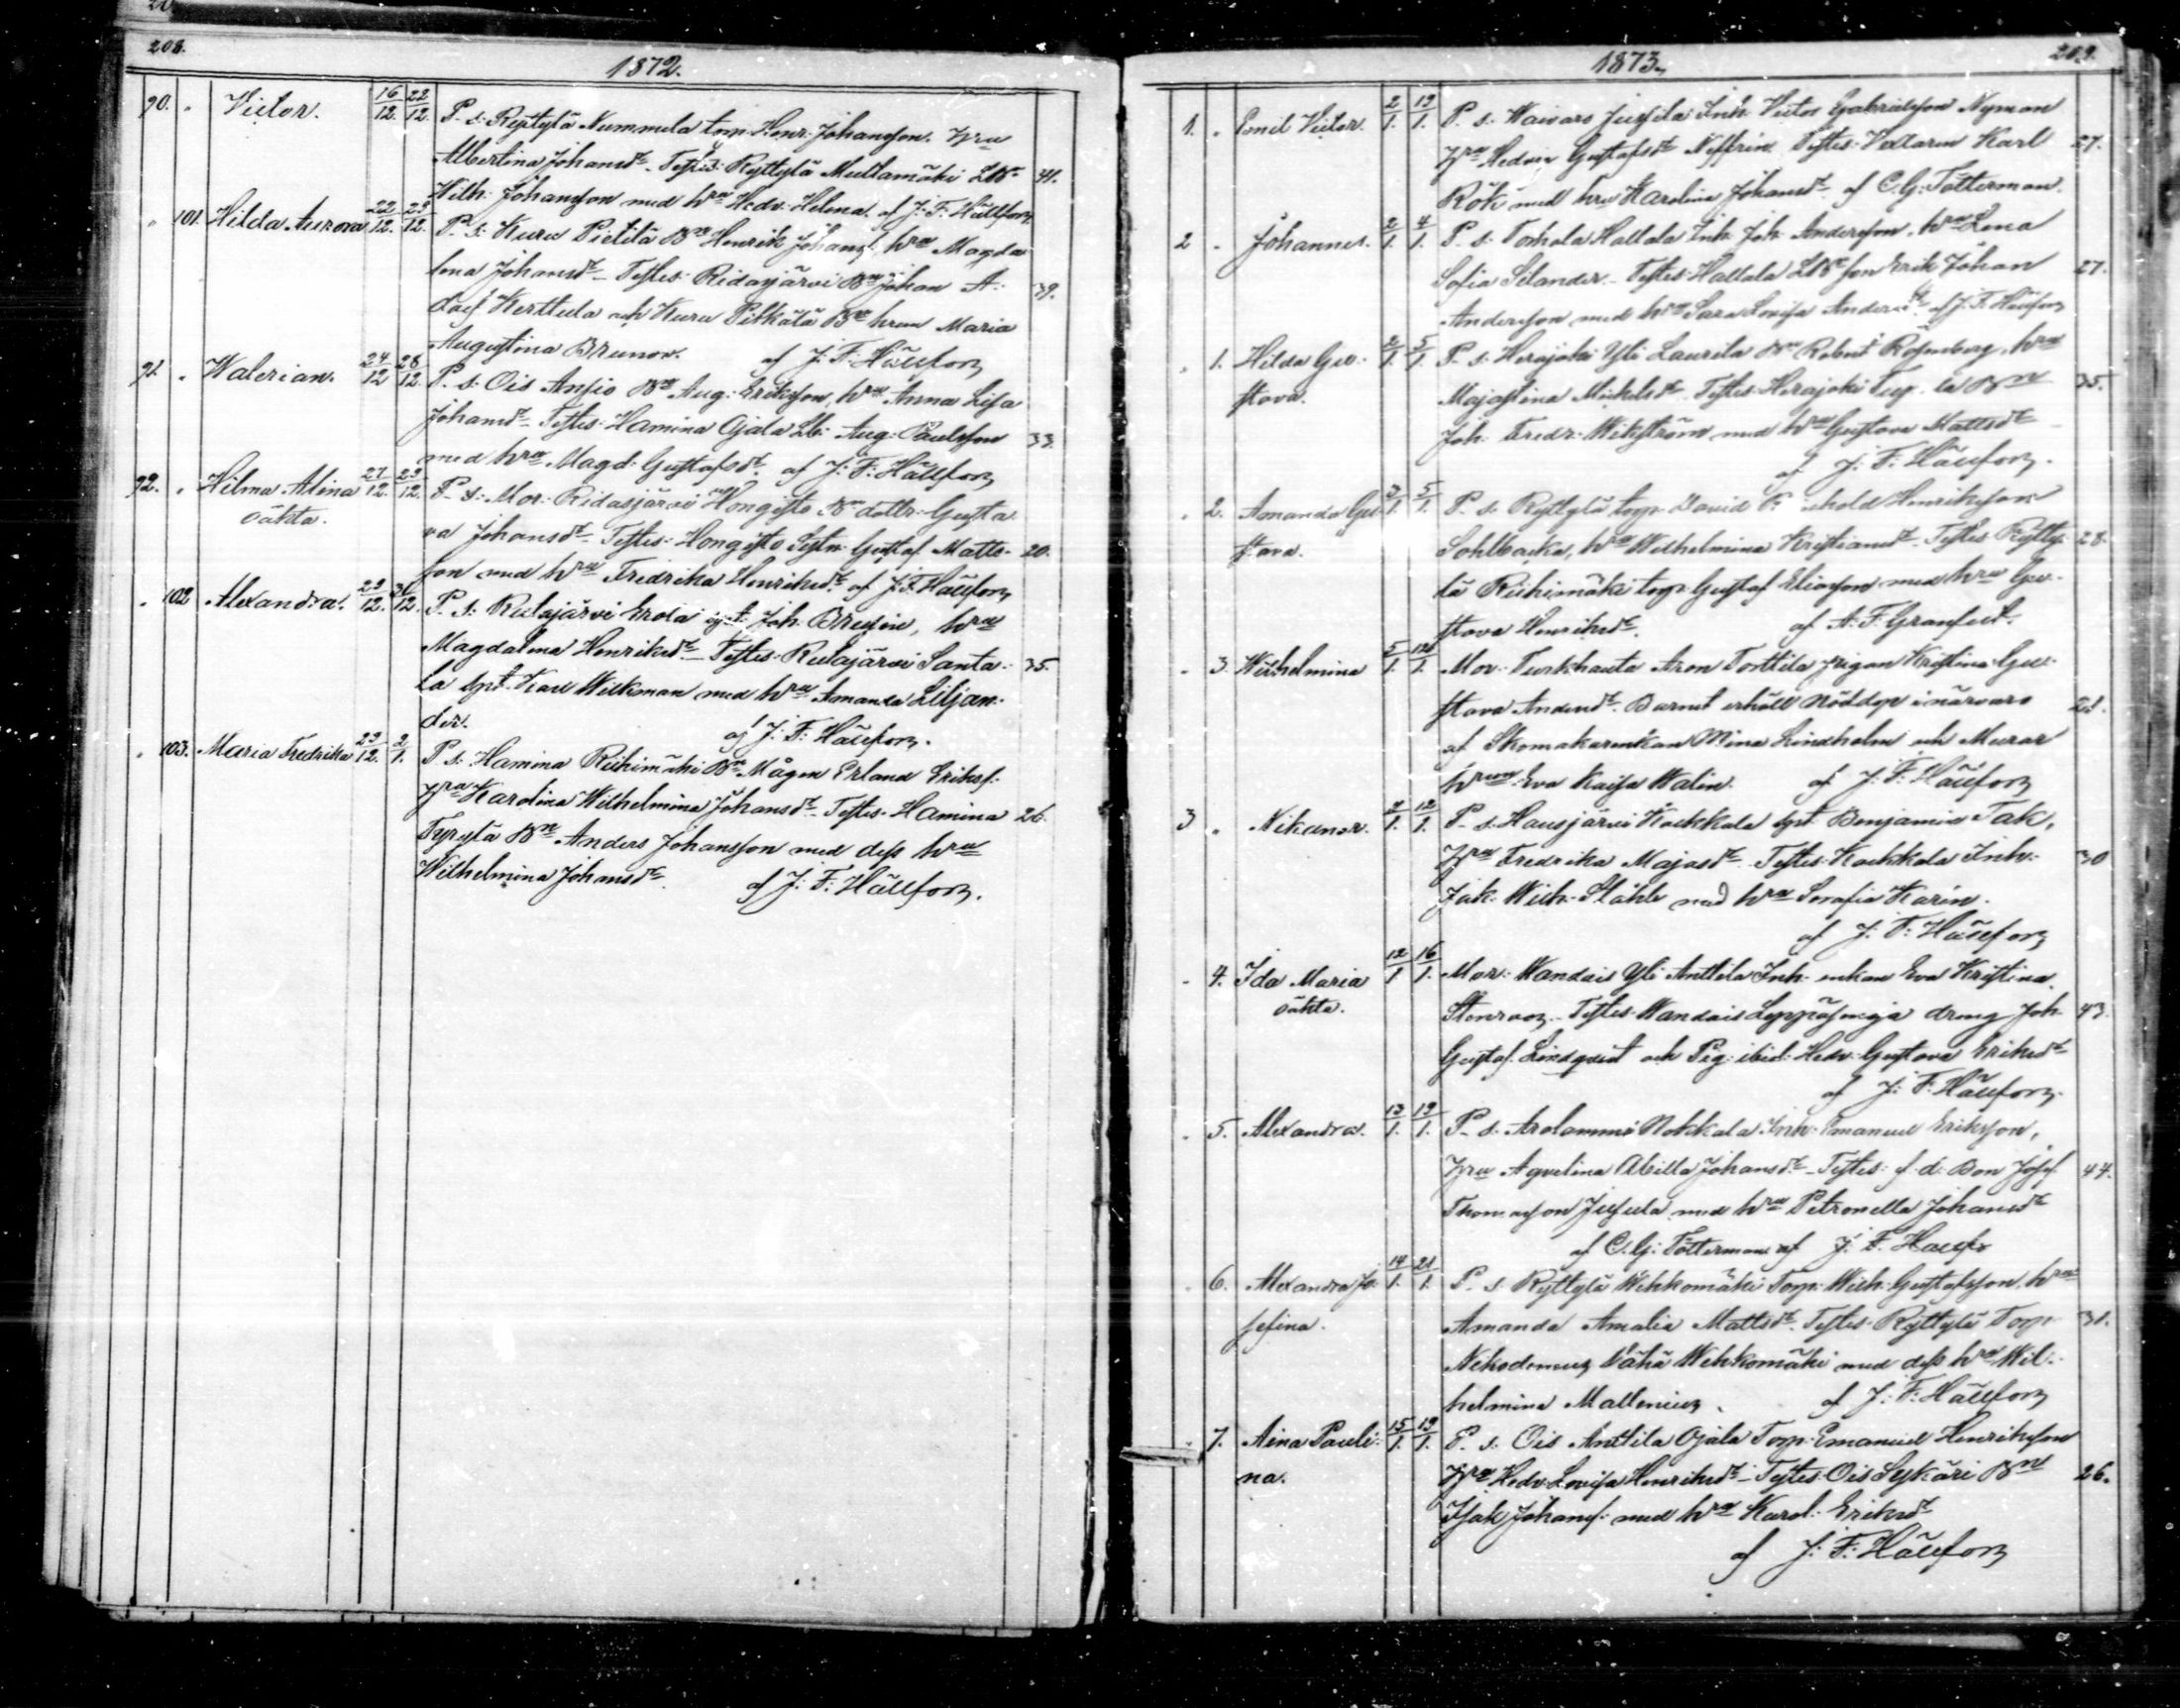 208.
1872.
90. " Victor. 16/12. 22/12. P. s. Ryttylä Nummela torp. Henr. Johansson. Hru
Albertina Johansdr. Testes: Ryttylä Multamäki 41.
Wilh. Johansson med hru Hedv. Helena. af J. F. Hällfors
" 101. Hilda Aurora 22/12. 12. P. s. Kuru Pietilä Bn Henrik Johanss. hru Magda
lena Johansdr. Testes: Ridasjärvi Bn Johan A. 39.
Kerttula och Kuru Pitkälä Bn hrun Maria
Augustina Brunov. af J. F. Hällfors
91. " Walerian. 24/12 28/12. P. s. Ois Ansio Bn Aug. Eriksson, hru Anna Lisa
Johansdr. Testes: Hamina Ojala Aug. Paulsson 33.
med hru Magd. Gustafsdr. af J. F. Hällfors
92. " Hilma Alina 27/12. 29/12. P. s. Mor: Ridasjärvi Hongisto Bn dottr. Gusta
oäkta. va Johansdr. Testes: Hongisto Gustaf Matts- 20.
son med hru Fredrika Henriksdr. af J. F. Hällfors
" 102 Alexandra. 29/12. 31/12. P. s. Erola Joh. hru
Magdalena Henriksdr. Testes: Santa- 35.
la Karl Wickman med hru Amanda Liljan-
der. af J. F. Hällfors.
" 103. Maria Fredrika 29/12. 2/1. P. s. Hamina Riihimäki Bn Mågen Erland Erikss.
Hru Karolina Wilhelmina Johansdr. Testes: Hamina 26.
Bn Anders Johansson med dess hru
Wilhelmina Johansdr. af J. F. Hällfors.
209.
1873.
1. " Emil Victor. 2/1. 19/1. P. s. Waivaro Jussila Inh. Victor Gabrielsson Nyman
Hru Hedvig Gustafsdr. Testes: Karl 27.
Rök med hru Karolina Johansdr. af C. G. Tötterman.
2 " Johannes. 2/1. 4/1. P. s. Torhola Hallala Inh. Joh. Andersson. hru Lena
Sofia Selander. Testes: Hallala son Erik Johan 27.
Andersson med hru Sara Lovisa Andersdr. af J. F. Hällfors
" 1. Hilda Gu- 2/1. 5/1. P. s. Herajoki Yli Laurila Bn Robert Rosenberg, hru
stava. Majastina Michelsdr. Testes: Herajoki Bn 35.
Joh. Fredr. Wikström med hru Gustava Mattsdr.
af J. F. Hällfors.
" 2. Amanda Gu- 3/1. 5/1. P. s. Ryttylä torp. David Henriksson
stava. Sohlbacka, hru Wilhelmina Kristiansdr. Testes: Rytty- 28.
lä Riihimäki torp. Gustaf Eliasson med hru Gu-
stava Henriksdr. af A. F. Granfelt.
" 3. Wilhelmina 5/1. 12/1. Mor: Turkhauta Aron Torttila pigan Kristina Gu-
stava Andersdr. Barnet erhöll nöddop i närvaro 28.
af Skomakarenkan Mina Lindholm och Murar
hrun Eva Kaisa Walin. af J. F. Hällfors
3 " Nikanor. 2/1. 12/1. P. s. Hausjärvi Kockkala Benjamin Tak,
Hru Fredrika Majasdr. Testes: Kockkala Inh. 30
Jak. Wilh. Ståhle med hru Serafia Karin.
af J. F. Hällfors
" 4. Ida Maria 12/1 16/1. Mor: Wandais Yli Anttila Inh. enkan Eva Kristina
oäkta. Stenroos. Testes: Wandais dreng Joh. 43.
Gustaf Lindqvist och Pig. ibid. Hedv. Gustava Eriksdr.
af J. F. Hällfors.
" 5. Alexandra. 13/1. 19/1. P. s. Arolammi Nokkala Inh. Emanuel Eriksson,
Hru Aqvelina Johansdr. Testes: f. d. Bon Josef 44.
Thomasson Jussila med hru Petronella Johansdr.
af C. G. Tötterman af J. F. Hällfors
" 6. Alexandra Jo- 14/1. 21/1. P. s. Ryttylä Wehkomäki Torp. Wilh. Gustafsson. hru
sefina. Amanda Amalia Mattsdr. Testes: Ryttylä Torp. 31.
Nikodemus Vähä Wehkomäki med dess hru Wil-
helmina Mallenius. af J. F. Hällfors
" 7. Aina Pauli- 15/1. 19/1. P. s. Ois Anttila Ojala Torp. Emanuel Henriksson
na. Hru Hedv. Lovisa Henriksdr. Testes: Ois Sykäri Bn 26.
Isak Johanss. med hru Karol. Eriksdr.
af J. F. Hällfors